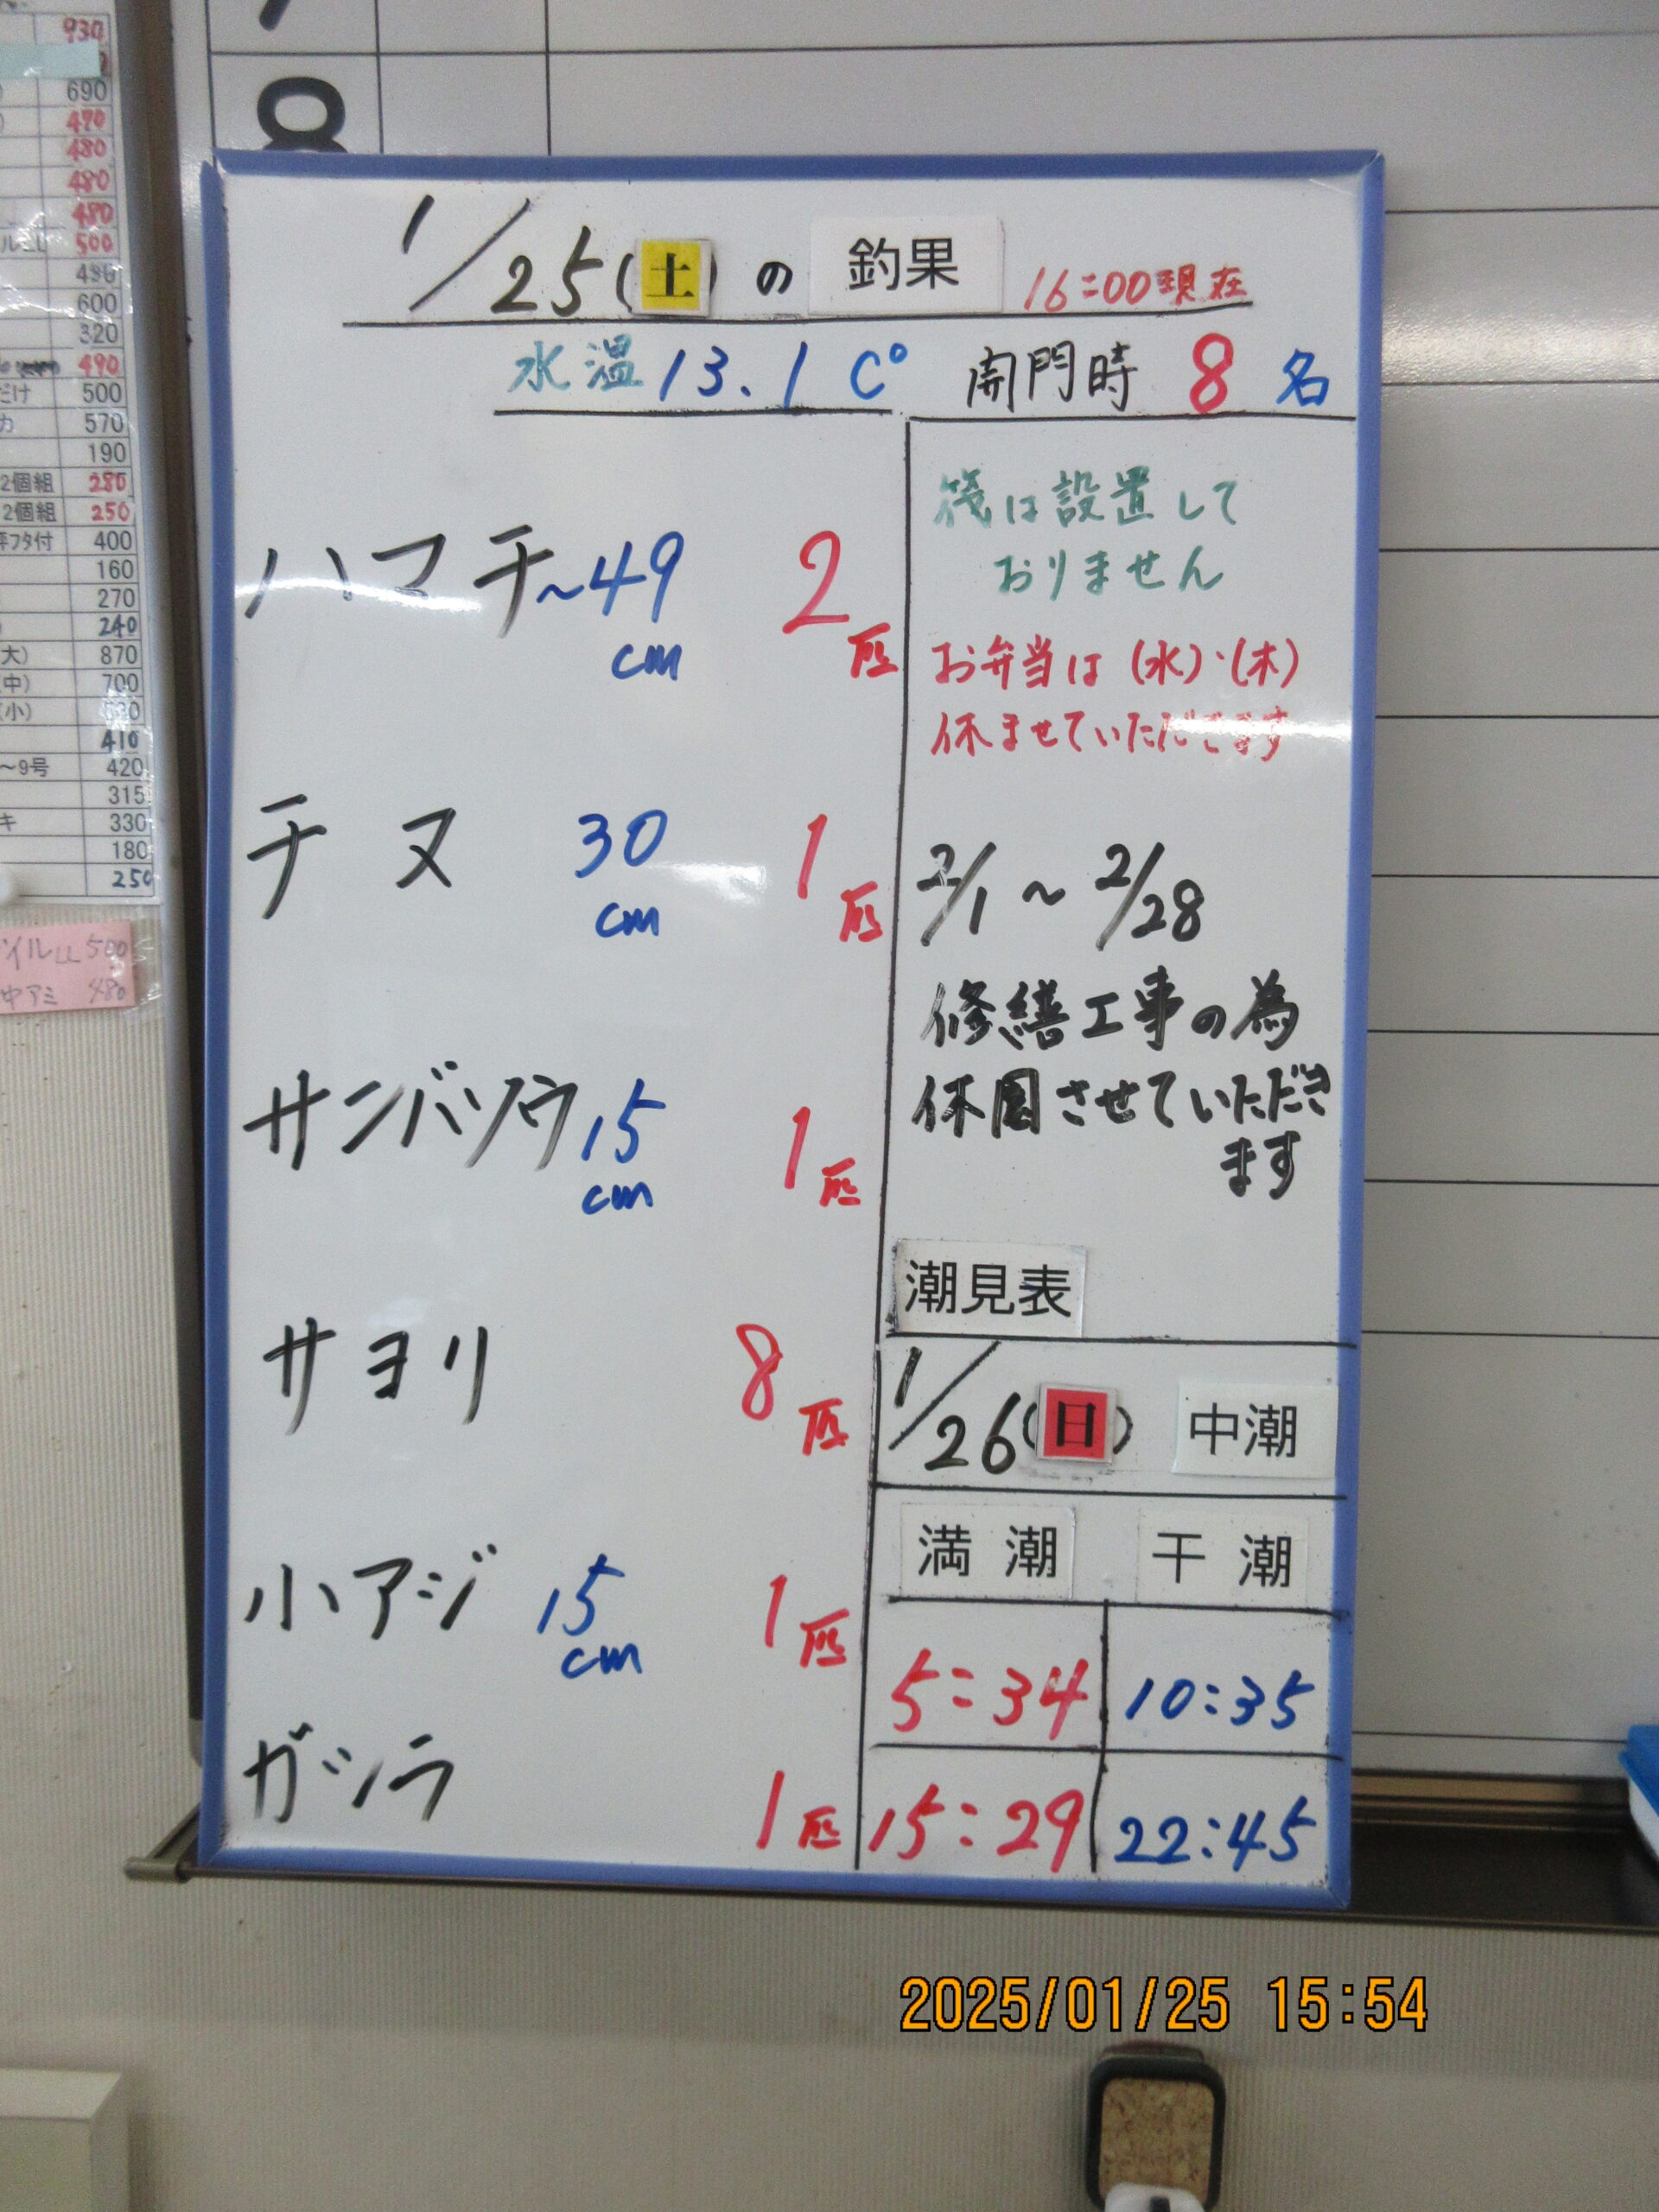 930
690
470
480
480
480
500
490
600
320
490
だけ 500
カ 570
190
2個組 280
2個組 250
400
160
270
240
大) 870
中) 700
(小)
410
～9号 420
315
キ 330
180
250
500
中アミ 480
8
1/25(土)の釣果 16:00現在
水温13.1C° 開門時 8名
ハマチ～49cm 2匹
チヌ 30cm 1匹
サンバソウ15cm 1匹
サヨリ 8匹
小アジ 15cm 1匹
ガシラ 1匹
筏は設置して
おりません
お弁当は(水)・(木)
休ませていただきます
2/1～2/28
修繕工事の為
休園させていただき
ます
潮見表
1/26(日) 中潮
満潮 干潮
5:34 10:35
15:29 22:45
2025/01/25 15:54